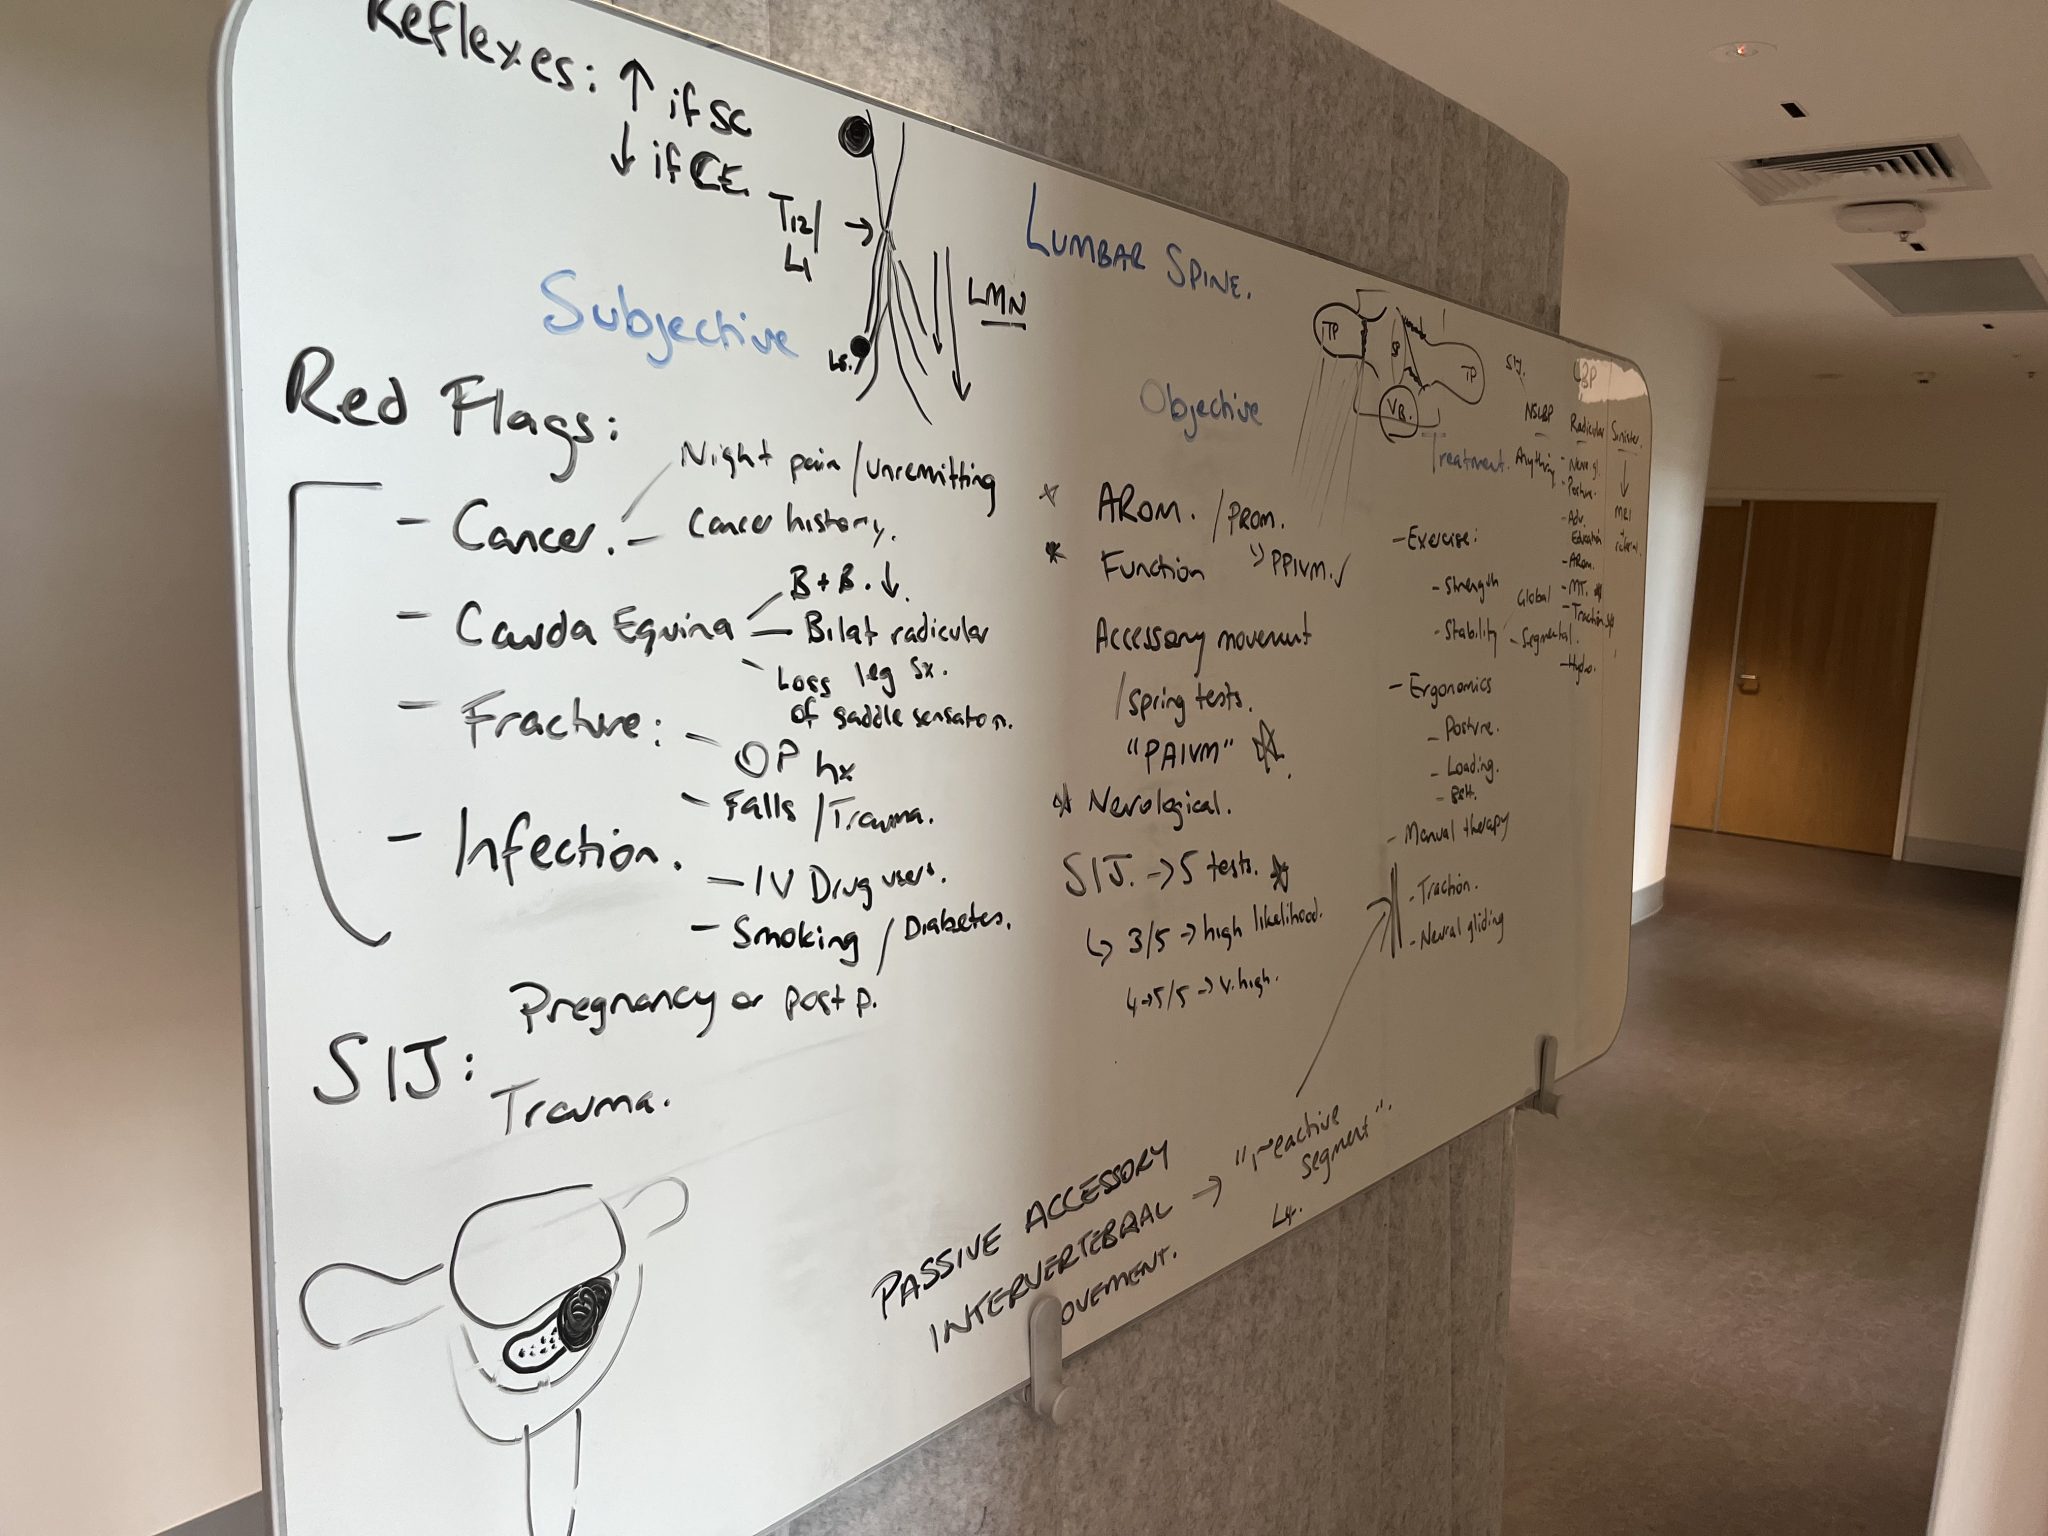 Reflexes: ↑ if SC
↓ if CE.
T12/
L1
→
LMN
LUMBAR SPINE.
Subjective
Red Flags:
- Cancer. - Night pain/unremitting
- Cancer history.
- Cauda Equina - B + B. ↓.
- Bilat radicular
leg sx.
- Loss
of saddle sensation.
- Fracture: - OP hx
- Falls / Trauma.
- Infection. - IV Drug users.
- Smoking / Diabetes.
SIJ: Pregnancy or post p.
Trauma.
Objective
* AROM. / PROM.
* Function
" PPIVM. ✓
Accessory movement
/ Spring tests.
"PAIVM" ☆
* Neurological.
SIJ. → 5 tests. ☆
↳ 3/5 → high likelihood.
4→5/5 → v. high.
PASSIVE ACCESSORY
INTERVERTEBRAL → "reactive
segment".
L4.
OVEMENT.
TP
SP
TP
VB.
Treatment.
- Exercise:
- Strength
- Stability
Global
- Segmental.
- Ergonomics
- Posture.
- Loading.
- Manual therapy
- Traction.
- Neural gliding
LBP
SIJ.
NSLBP
Anything
Radicular
- Posture.
- Adv.
Education
- AROM.
- MT.
- Traction
- Hydro.
Sinister.
↓
MRI
referral.